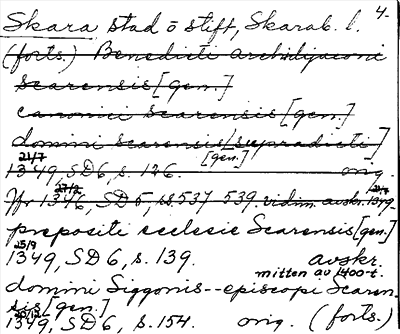 4.
Skara stad o stift, Skarab. l.
(forts.) Benedicti archidyaconi
scarensis [gen.]
canonici scarensis [gen.]
domini scarensis [supradicti]
[gen.]
21/7
1349, SD 6, s. 126. orig.
Jfr 1346, SD 5, ss 537-539. vidim. avskr. 1349.
prepositi ecclesie Scarensis [gen.]
25/9
1349, SD 6, s. 139. avskr.
mitten av 1400-t.
domini Siggonis--episcopi Scaren-
sis [gen.]
1349, SD 6, s. 154. orig. (forts.)